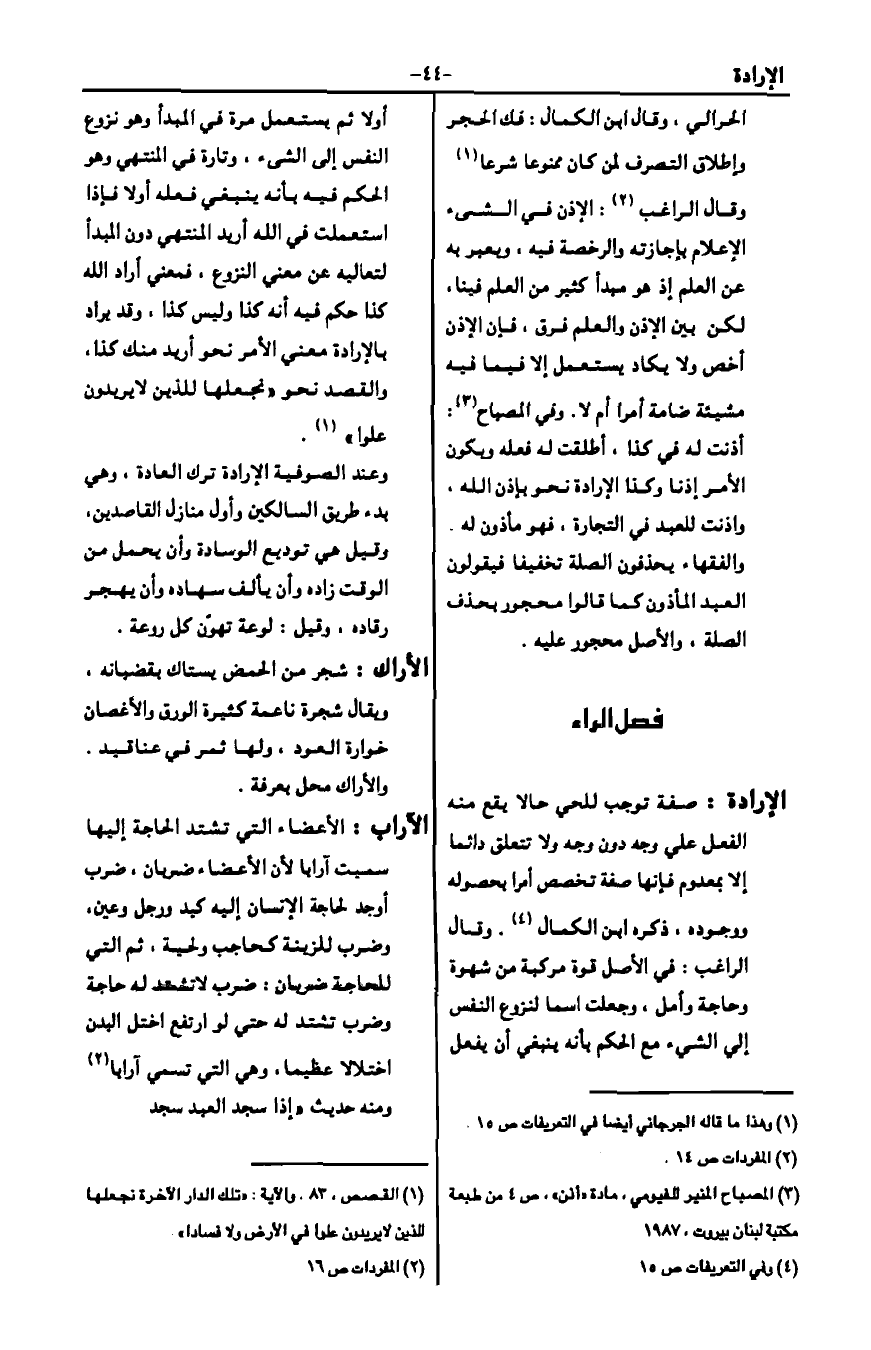 الإرادة
-٤٤-
الحرالي ، وقال ابن الكمال : فك الحجر
وإطلاق التصرف لمن كان ممنوعا شرعا (١)
وقال الراغب (٢) : الإذن في الشىء
الإعلام بإجازته والرخصة فيه ، ويعبر به
عن العلم إذ هو مبدأ كثير من العلم فينا،
لكن بين الإذن والعلم فرق ، فإن الإذن
أخص ولا يكاد يستعمل إلا فيما فيه
مشيئة ضامة أمرا أم لا. وفي المصباح(٣):
أذنت له في كذا ، أطلقت له فعله ويكون
الأمر إذنا وكذا الإرادة نحو بإذن الله ،
واذنت للعبد في التجارة ، فهو مأذون له .
والفقهاء يحذفون الصلة تخفيفا فيقولون
العبد المأذون كما قالوا محجور بحذف
الصلة ، والأصل محجور عليه .
فصل الراء
الإرادة : صفة توجب للحي حالا يقع منه
الفعل علي وجه دون وجه ولا تتعلق دائما
إلا بمعدوم فإنها صفة تخصص أمرا بحصوله
ووجوده ، ذكره ابن الكمال (٤) . وقال
الراغب : في الأصل قوة مركبة من شهوة
وحاجة وأمل ، وجعلت اسما لنزوع النفس
إلي الشيء مع الحكم بأنه ينبغي أن يفعل
(١) وهذا ما قاله الجرجاني أيضا في التعريفات ص ١٥ .
(٢) المفردات ص ١٤ .
(٣) المصباح المنير للفيومي ، مادة «أذن» ، ص ٤ من طبعة
مكتبة لبنان بيروت ، ١٩٨٧
(٤) وفي التعريفات ص ١٥
أولا ثم يستعمل مرة في المبدأ وهو نزوع
النفس إلى الشىء ، وتارة في المنتهي وهو
الحكم فيه بأنه ينبغي فعله أولا فإذا
استعملت في الله أريد المنتهي دون المبدأ
لتعاليه عن معني النزوع ، فمعني أراد الله
كذا حكم فيه أنه كذا وليس كذا ، وقد يراد
بالإرادة معني الأمر نحو أريد منك كذا،
والقصد نحو «نجعلها للذين لايريدون
علوا» (١) .
وعند الصوفية الإرادة ترك العادة ، وهي
بدء طريق السالكين وأول منازل القاصدين،
وقيل هي توديع الوسادة وأن يحمل من
الوقت زاده وأن يألف سهاده وأن يهجر
رقاده ، وقيل : لوعة تهوّن كل روعة .
الأراك : شجر من الحمض يستاك بقضبانه ،
ويقال شجرة ناعمة كثيرة الورق والأغصان
خوارة العود ، ولها ثمر في عناقيد .
والأراك محل بعرفة .
الآراب : الأعضاء التي تشتد الحاجة إليها
سميت آرابا لأن الأعضاء ضربان ، ضرب
أوجد لحاجة الإنسان إليه كيد ورجل وعين،
وضرب للزينة كحاجب ولحية ، ثم التي
للحاجة ضربان : ضرب لاتشتد له حاجة
وضرب تشتد له حتي لو ارتفع اختل البدن
اختلالا عظيما، وهي التي تسمي آرابا(٢)
ومنه حديث «إذا سجد العبد سجد
(١) القصص ، ٨٣ . والآية : «تلك الدار الآخرة نجعلها
للذين لايريدون علوا في الأرض ولا فسادا» .
(٢) المفردات ص ١٦